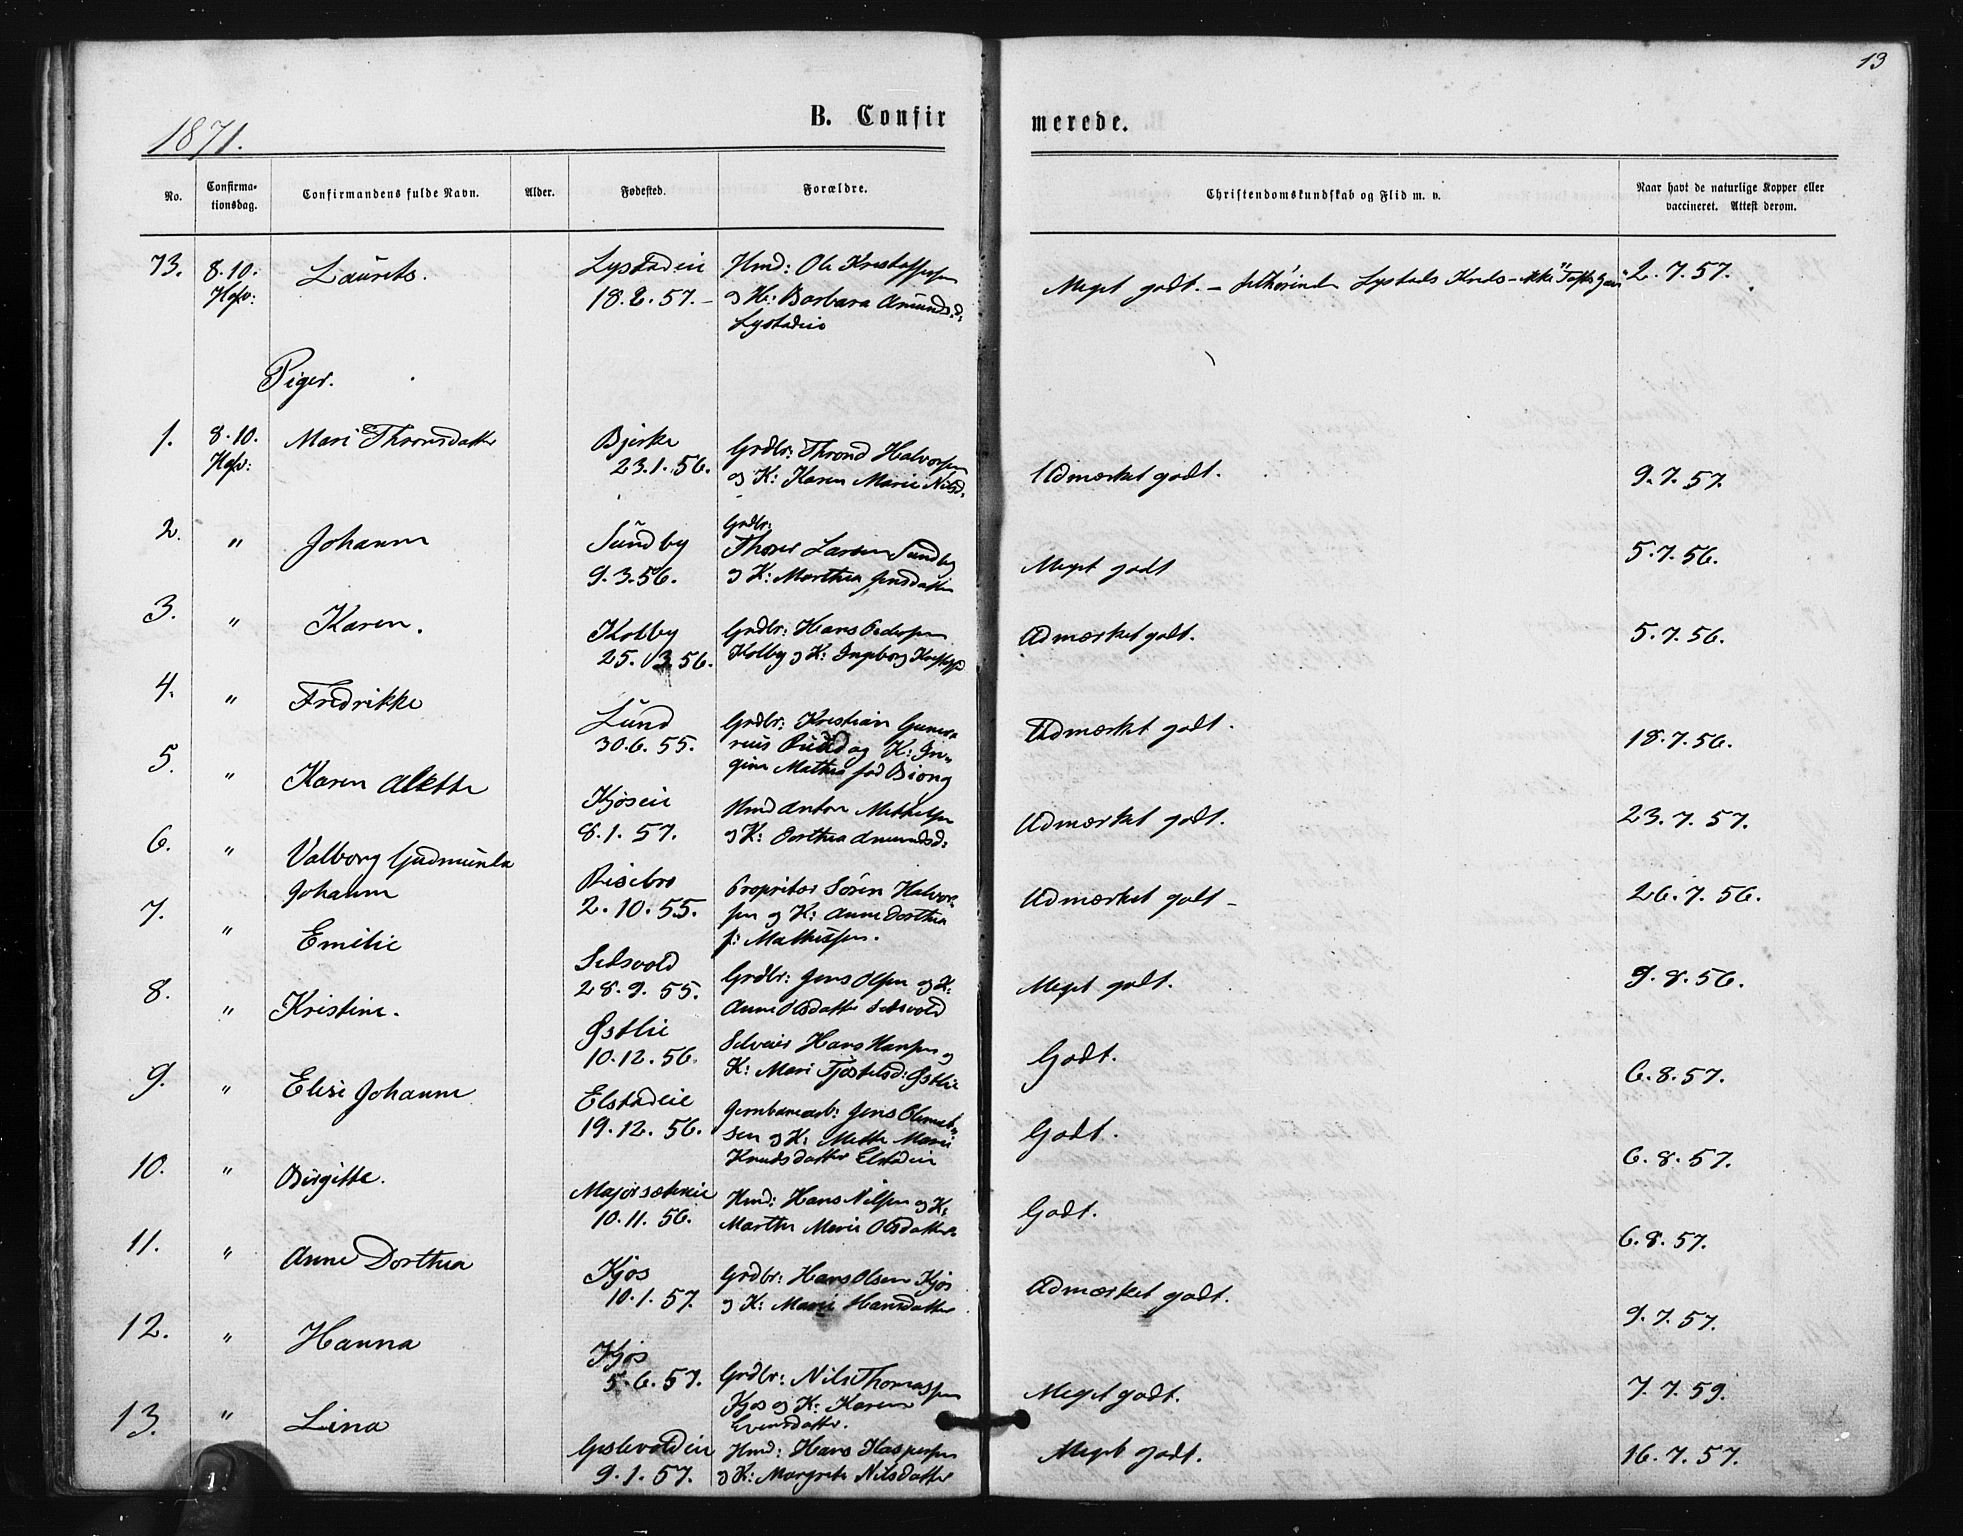 13
1871.
B. Confirmerede.
No. Confirmationsdag. Confirmandens fulde Navn. Alder. Fødested. Forældre. Christendomskundskab og Flid m. v. Naar havt de naturlige Kopper eller vaccineret. Attest derom.
73. 8.10. Laurits. Lystadeie Hmd: Ole Kristoffersen Meget godt. – Lystads Kreds – ikke 2.7.57.
18.2.57. – og K: Barbara Amundsd:
Lystadeie
Piger.
1. 8.10. Mari Thronsdatter Bjerke Grdbr: Thrond Halvorsen Udmærket godt. 9.7.57.
23.1.56. og K: Karen Marie Nilsd.
2. " Johanne Sundby Grdbr: Meget godt 5.7.56.
9.3.56. Thorer Larsen Sundby
og K: Marthea Jensdatter
3. " Karen. Kolby Grdbr: Hans Pedersen Udmærket godt. 5.7.56.
25.3.56. Kolby og K: Ingeborg
4. " Fredrikke Lund Grdbr: Kristian Gunerius Udmærket godt. 18.7.56.
30.6.55. Lund og K: Ingine Mathea fød Biong
5. " Karen Alette Kjøseie Hmd Anton Mikkelsen Udmærket godt. 23.7.57.
8.1.57. og K: Dorthea Amundsd:
6. " Valborg Gudmunda Johanne Risebro Propritær Søren Halvorsen Udmærket godt – 26.7.56.
2.10.55. og K: Anne Dorthea
f: Mathiesen.
7. " Emilie Setsvold Grdbr: Jens Olsen og K: Meget godt. 9.8.56.
28.9.55. Anne Olsdatter Setsvold
8. " Kristine. Østlie Selveier Hans Hansen og Godt. 6.8.57.
10.12.56. K: Mari Tjøstelsd: Østlie
9. " Elise Johanne Elstadeie Jernbanearb: Jens Godt. 6.8.57.
19.12.56. og K: Mette Marie
Knudsdatter Elstadeie
10. " Birgitte. Majorsætereie Hmd: Hans Nilsen og K: Godt. 6.8.57.
10.11.56. Marthe Marie Olsdatter
11. " Anne Dorthea Kjos Grdbr: Hans Olsen Kjos Udmærket godt. 9.7.57.
10.1.57. og K: Marie Hansdatter
12. " Hanna Kjos Grdbr: Nils Thomassen Meget godt. 7.7.59.
5.6.57. Kjos og K: Karen
Evensdatter.
13. " Lina Gislevoldeie Hmd: Hans Kaspersen Meget godt. 16.7.57.
9.1.57. og K: Margrete Nilsdatter